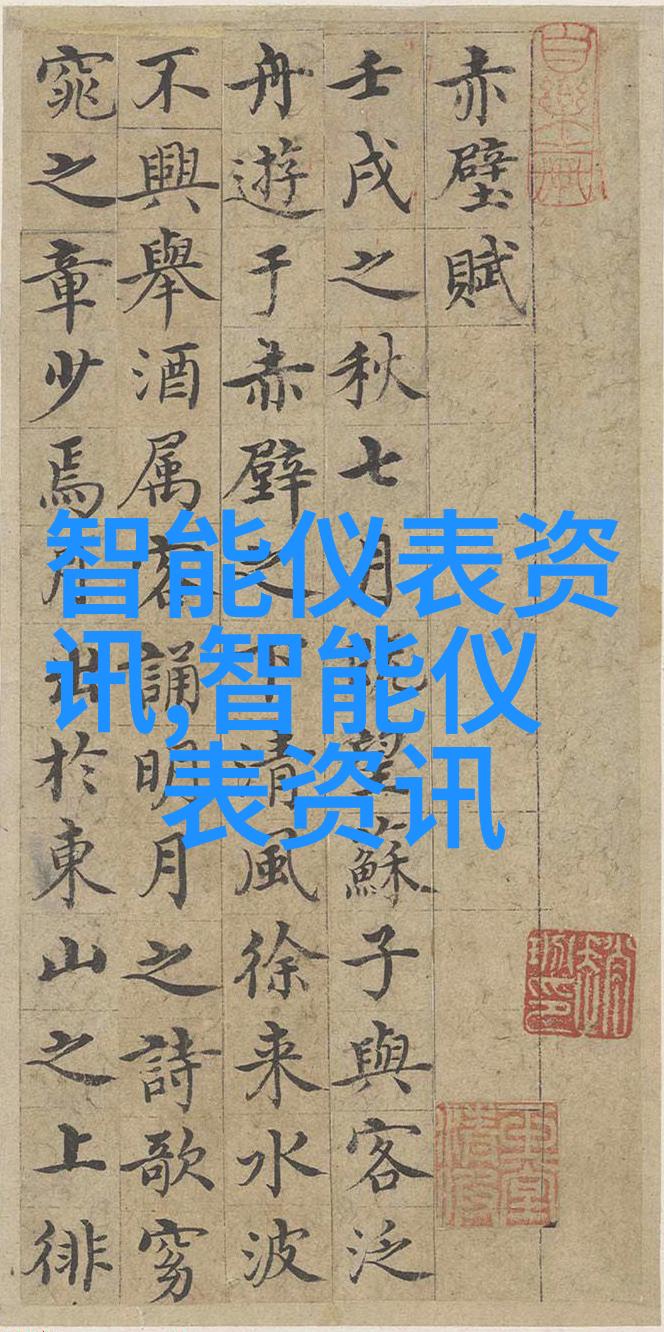 赤壁賦
壬戌之秋七月既望蘇子與客泛
舟遊于赤壁之下清風徐来水波
不興舉酒属客誦明月之詩歌窈
窕之章少焉月出於東山之上徘
智能仪表资
讯,智能仪
表资讯